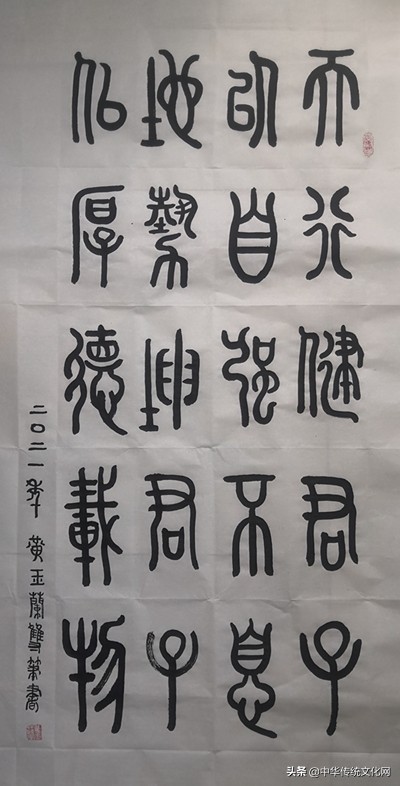 天行健君子
以自强不息
地勢坤君子
以厚德載物
二〇二一年 黄玉蘭雙筆書
头条 @中华传统文化网